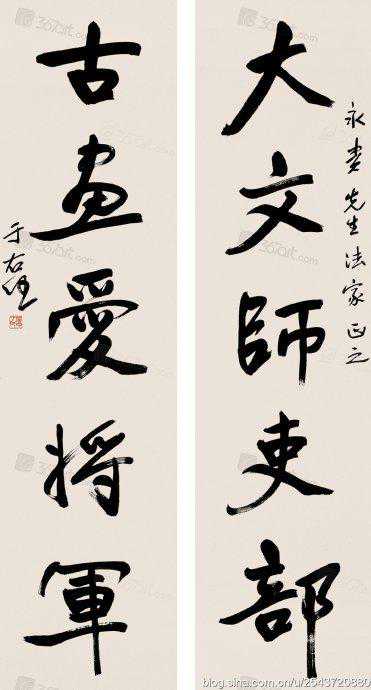 永 先生法家正之
大文師吏部
古畫愛將軍
于右任
blog.sina.com.cn/u/2543720880